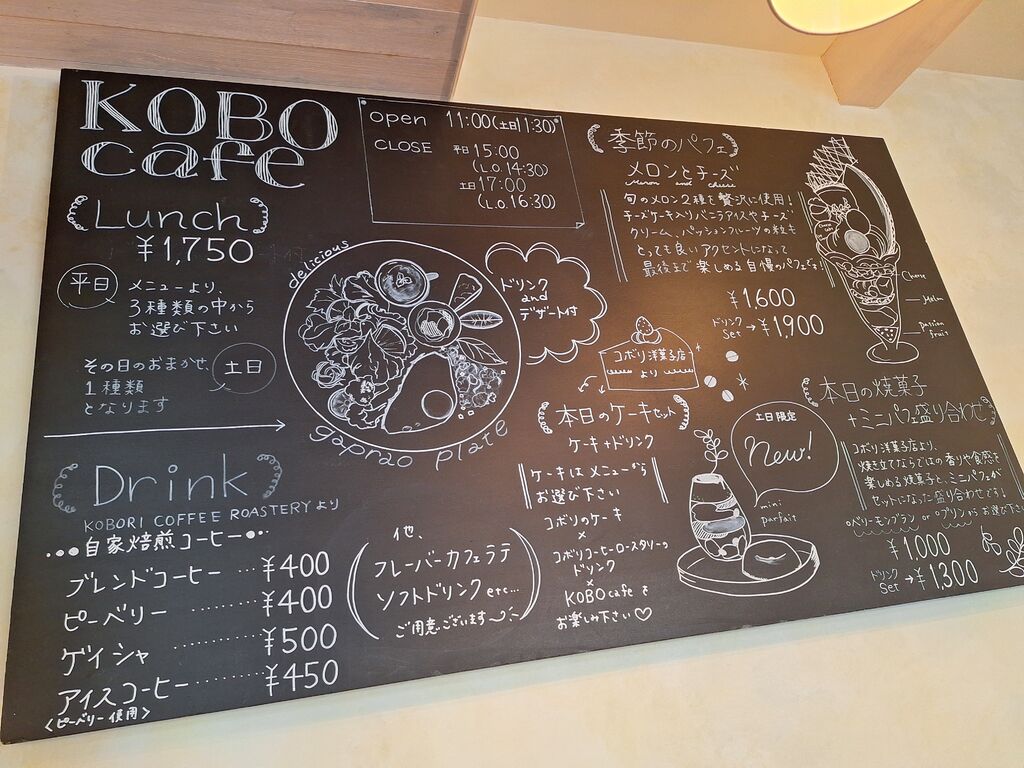 KOBO
cafe
open 11:00(土日11:30)
CLOSE 平日15:00
(L.O.14:30)
土日17:00
(L.O.16:30)
Lunch
¥1,750
平日
メニューより、
3種類の中から
お選び下さい
その日のおまかせ、
1種類
となります
土日
delicious
gaprao plate
ドリンク
and
デザート付
Drink
KOBORI COFFEE ROASTERYより
自家焙煎コーヒー
ブレンドコーヒー…¥400
ピーベリー………¥400
ゲイシャ………¥500
アイスコーヒー………¥450
<ピーベリー使用>
他、
フレーバーカフェラテ
ソフトドリンクetc...
ご用意ございます
季節のパフェ
メロンとチーズ
Meron and cheese
旬のメロン2種を贅沢に使用!
チーズケーキ入りバニラアイスやチーズ
クリーム、パッションフルーツの粒も
とっても良いアクセントになって
最後まで楽しめる自慢のパフェです!
¥1,600
ドリンク
Set→¥1,900
Cheese
Melon
passion
fruit
コボリ洋菓子店
より
本日のケーキセット
ケーキ+ドリンク
ケーキはメニューから
お選び下さい
コボリのケーキ
×
コボリコーヒーロースタリーの
ドリンク
×
KOBO cafeで
お楽しみ下さい♡
土日限定
New!
mini
parfait
本日の焼菓子
+ミニパフェ盛り合わせ
コボリ洋菓子店より、
焼き立てならではの香りや食感を
楽しめる焼菓子と、ミニパフェが
セットになった盛り合わせです!
°ベリーモンブラン or °プリンからお選び下さい
¥1,000
ドリンク
Set→¥1,300